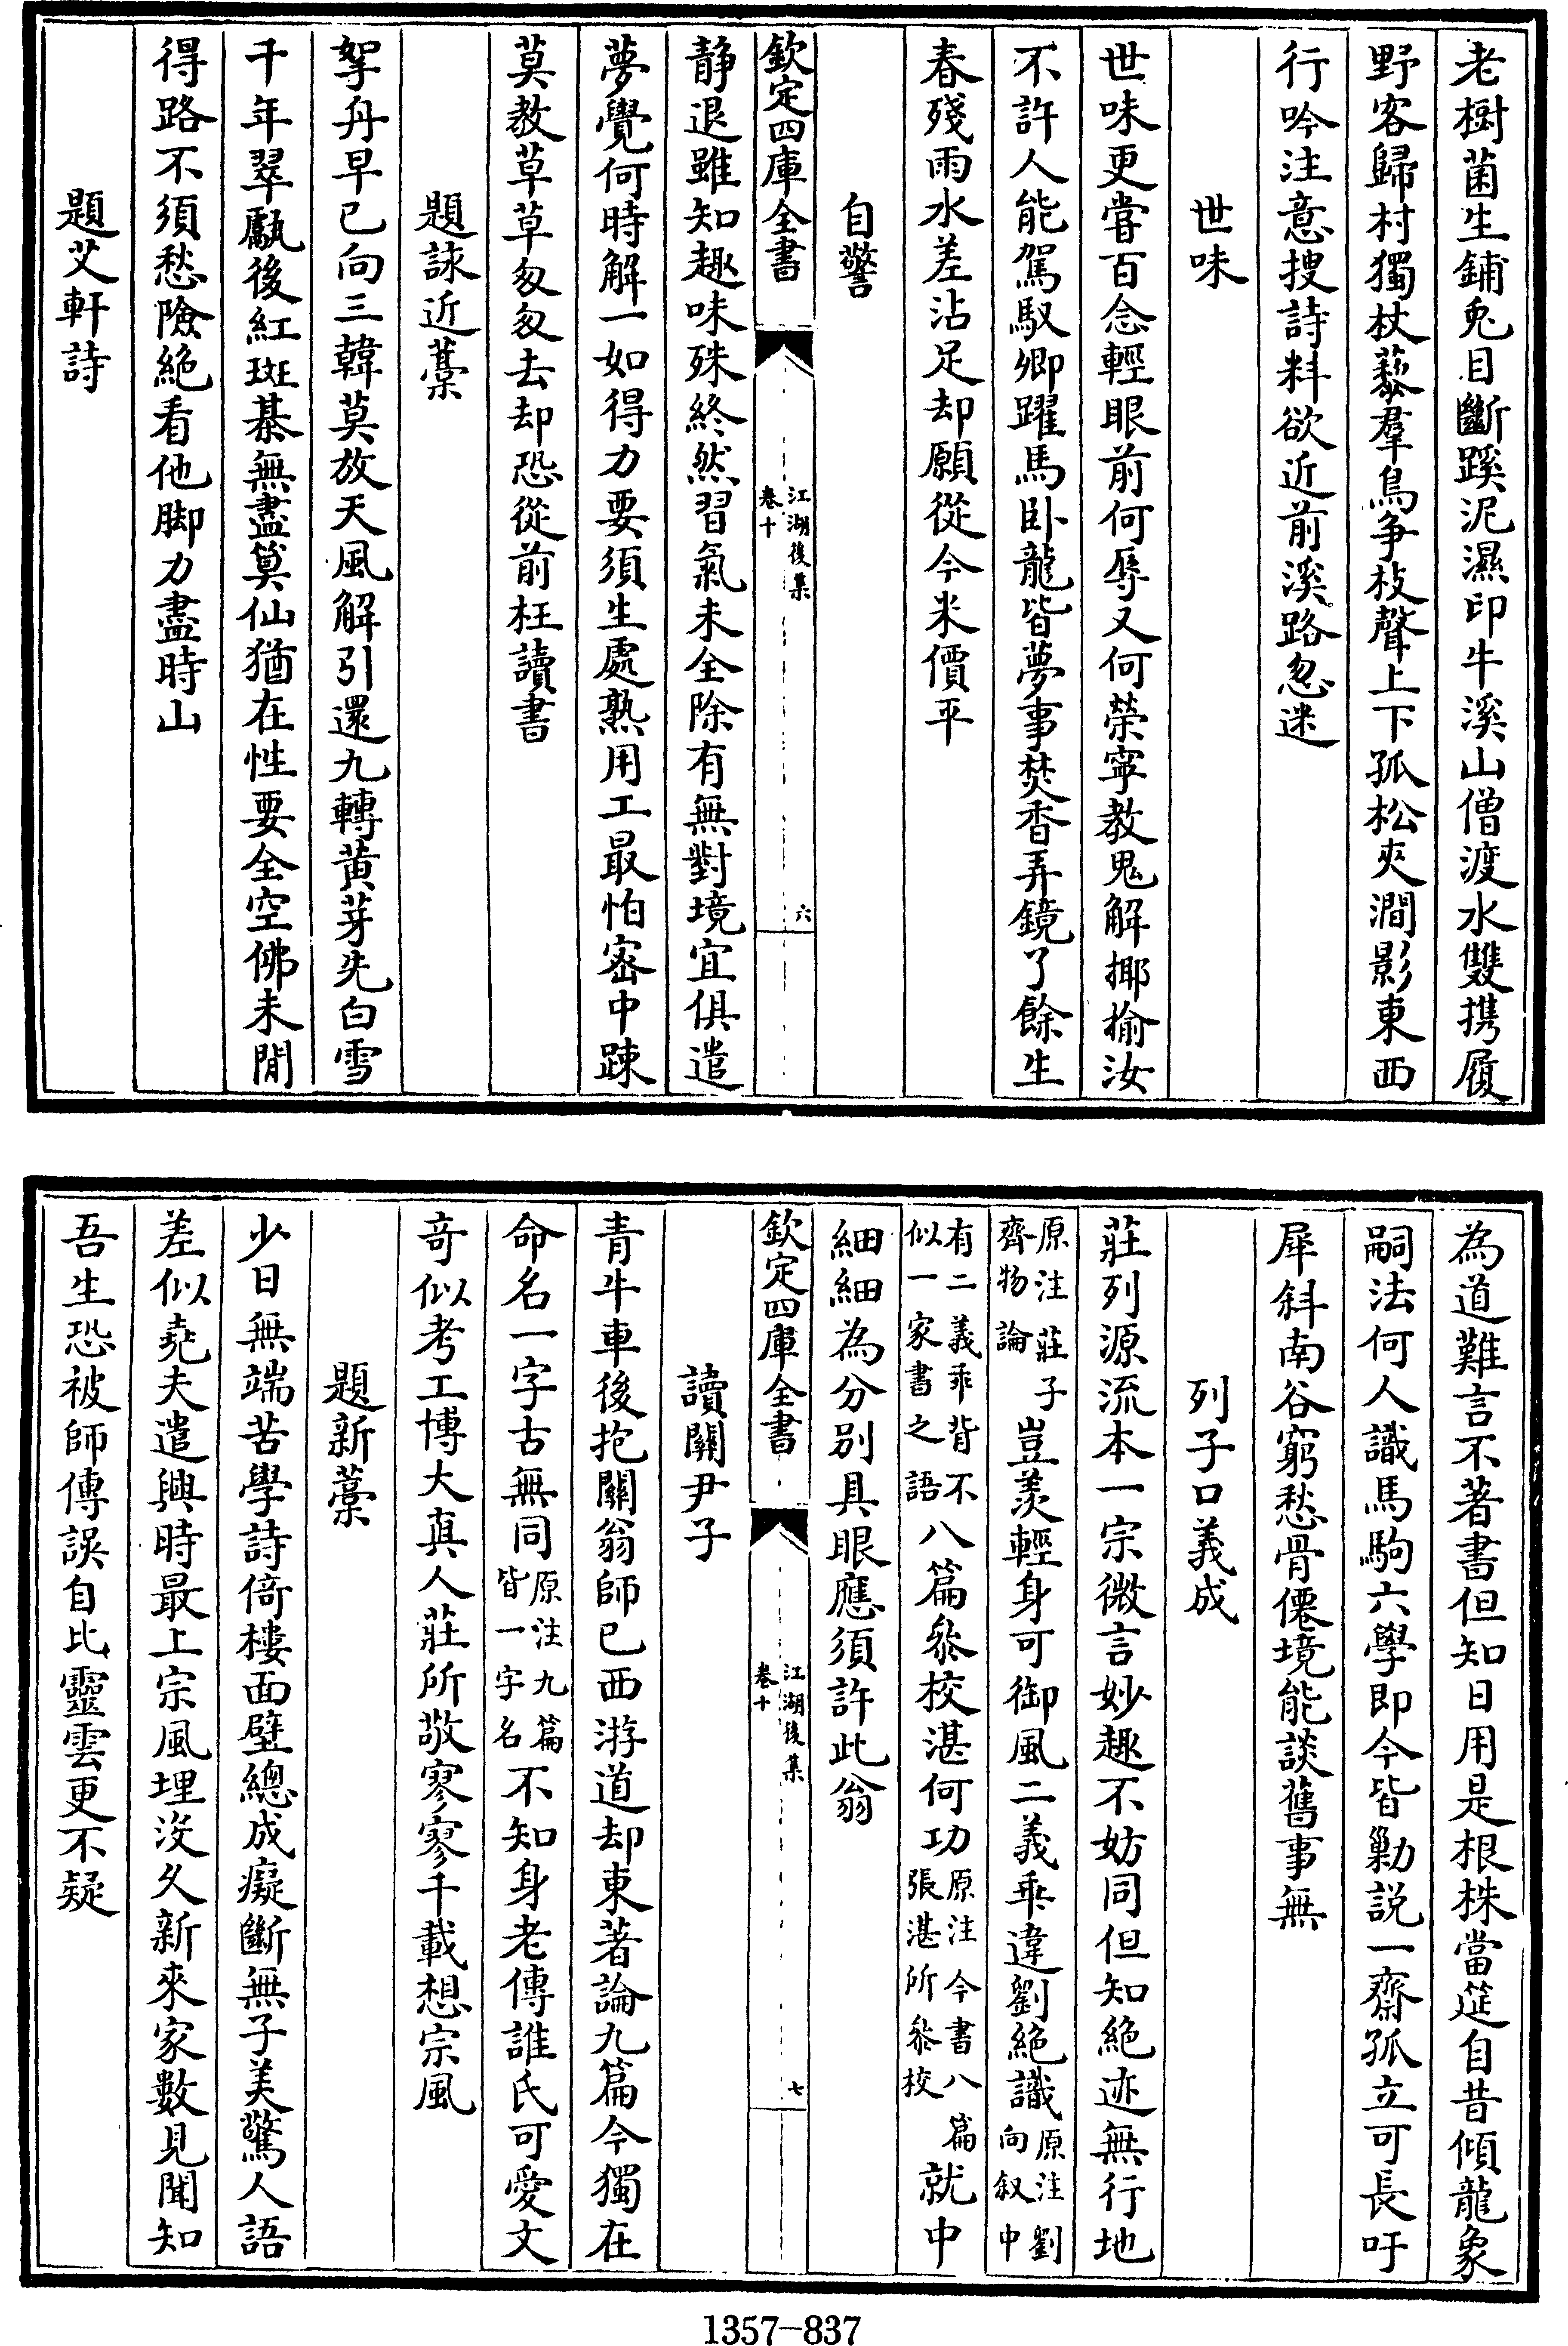 老樹菌生鋪兎目斷蹊泥濕印牛溪山僧渡水雙携履
野客歸村獨杖藜羣鳥争枝聲上下孤松夾澗影東西
行吟注意搜詩料欲近前溪路忽迷
世味
世味更嘗百念輕眼前何辱又何榮寜教鬼解揶揄汝
不許人能駕馭卿躍馬卧龍皆夢事焚香弄鏡了餘生
春殘雨水差沾足却願從今米價平
自警
欽定四庫全書
江湖後集
卷十
六
静退雖知趣味殊終然習氣未全除有無對境宜俱遣
夢覺何時解一如得力要須生處熟用工最怕宻中踈
莫教草草匆匆去却恐從前枉讀書
題詠近藁
挐舟早已向三韓莫放天風解引還九轉黄芽先白雪
千年翠劚後紅斑棊無盡算仙猶在性要全空佛未閒
得路不須愁險絶看他脚力盡時山
題艾軒詩
為道難言不著書但知日用是根株當筵自昔傾龍象
嗣法何人識馬駒六學即今皆勦説一齋孤立可長吁
犀斜南谷窮愁骨僊境能談舊事無
列子口義成
莊列源流本一宗微言妙趣不妨同但知絶迹無行地
原注莊子
齊物論
豈羨輕身可御風二義乖違劉絶識
原注劉
向叙中
有二義乖背不
似一家書之語
八篇叅校湛何功
原注今書八篇
張湛所叅校
就中
細細為分别具眼應須許此翁
欽定四庫全書
江湖後集
卷十
七
讀關尹子
青牛車後抱關翁師已西游道却東著論九篇今獨在
命名一字古無同
原注九篇
皆一字名
不知身老傳誰氏可愛文
奇似考工博大真人莊所敬寥寥千載想宗風
題新藁
少日無端苦學詩倚樓面壁總成癡斷無子美驚人語
差似堯夫遣興時最上宗風埋没久新來家數見聞知
吾生恐被師傳誤自比靈雲更不疑
1357-837